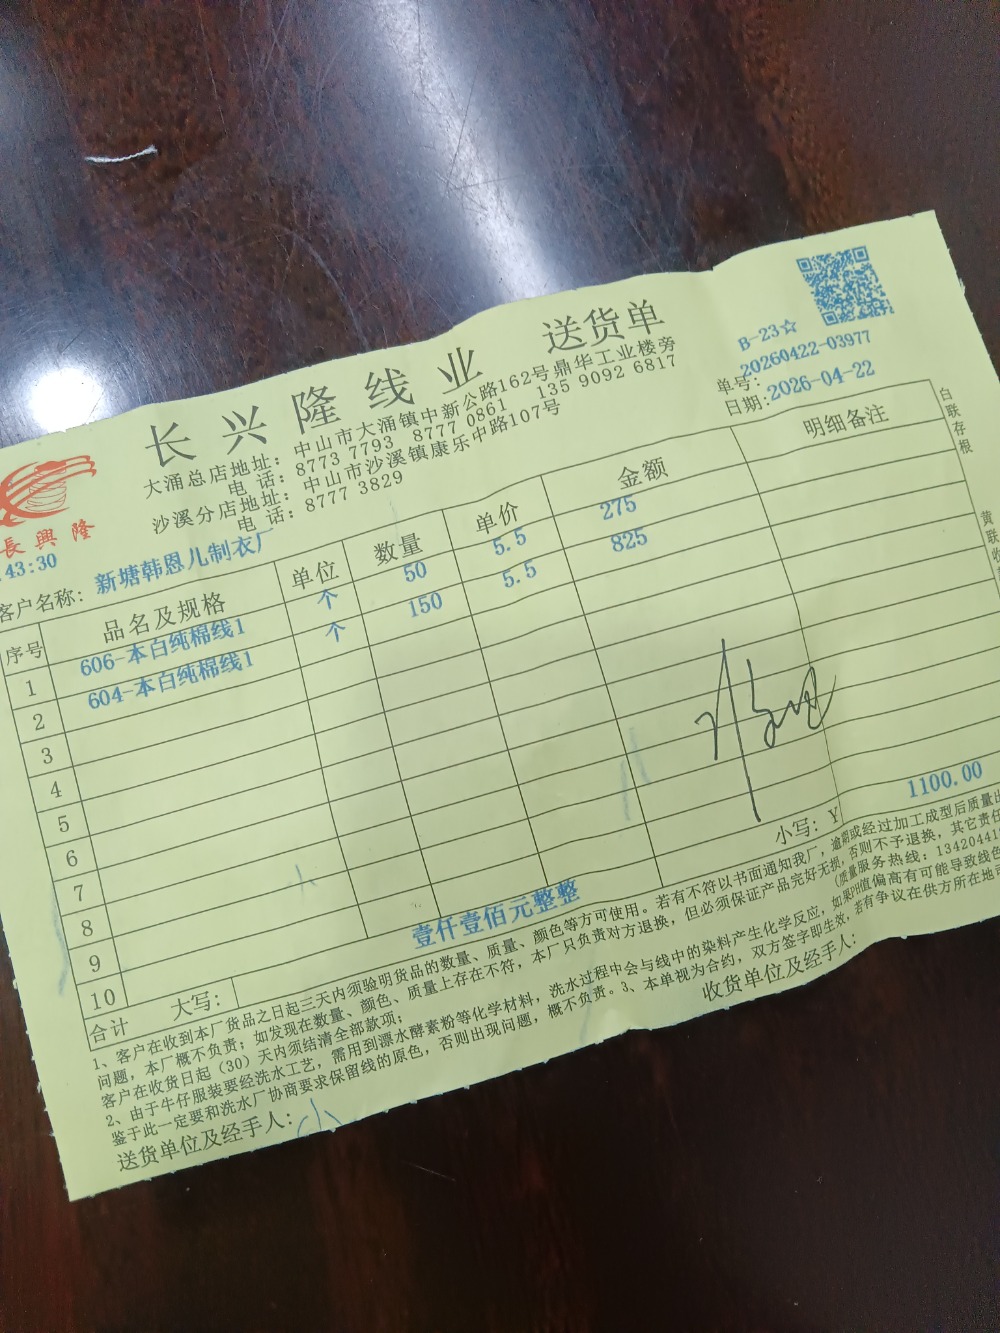 长兴隆线业 送货单
B-23☆
大涌总店地址: 中山市大涌镇中新公路162号鼎华工业楼旁
电 话: 8773 7793 8777 0861 135 9092 6817
沙溪分店地址: 中山市沙溪镇康乐中路107号
电 话: 8777 3829
单号: 20260422-03977
日期: 2026-04-22
長興隆
43:30
客户名称: 新塘韩恩儿制衣厂
序号 品名及规格 单位 数量 单价 金额 明细备注
1 606-本白纯棉线1 个 50 5.5 275
2 604-本白纯棉线1 个 150 5.5 825
3
4
5
6
7
8
9
10
合计 大写: 壹仟壹佰元整整 小写: ¥ 1100.00
1、客户在收到本厂货品之日起三天内须验明货品的数量、质量、颜色等方可使用。若有不符以书面通知我厂,逾期或经过加工成型后质量出
问题,本厂概不负责;如发现在数量、颜色、质量上存在不符,本厂只负责对方退换,但必须保证产品完好无损,否则不予退换,其它责任
客户在收货日起(30)天内须结清全部款项; (质量服务热线: 13420441
2、由于牛仔服装要经洗水工艺,需用到漂水酵素粉等化学材料,洗水过程中会与线中的染料产生化学反应,如果PH值偏高有可能导致线色
鉴于此一定要和洗水厂协商要求保留线的原色,否则出现问题,概不负责。3、本单视为合约,双方签字即生效,若有争议在供方所在地司
送货单位及经手人: 收货单位及经手人:
白联存根
黄联收